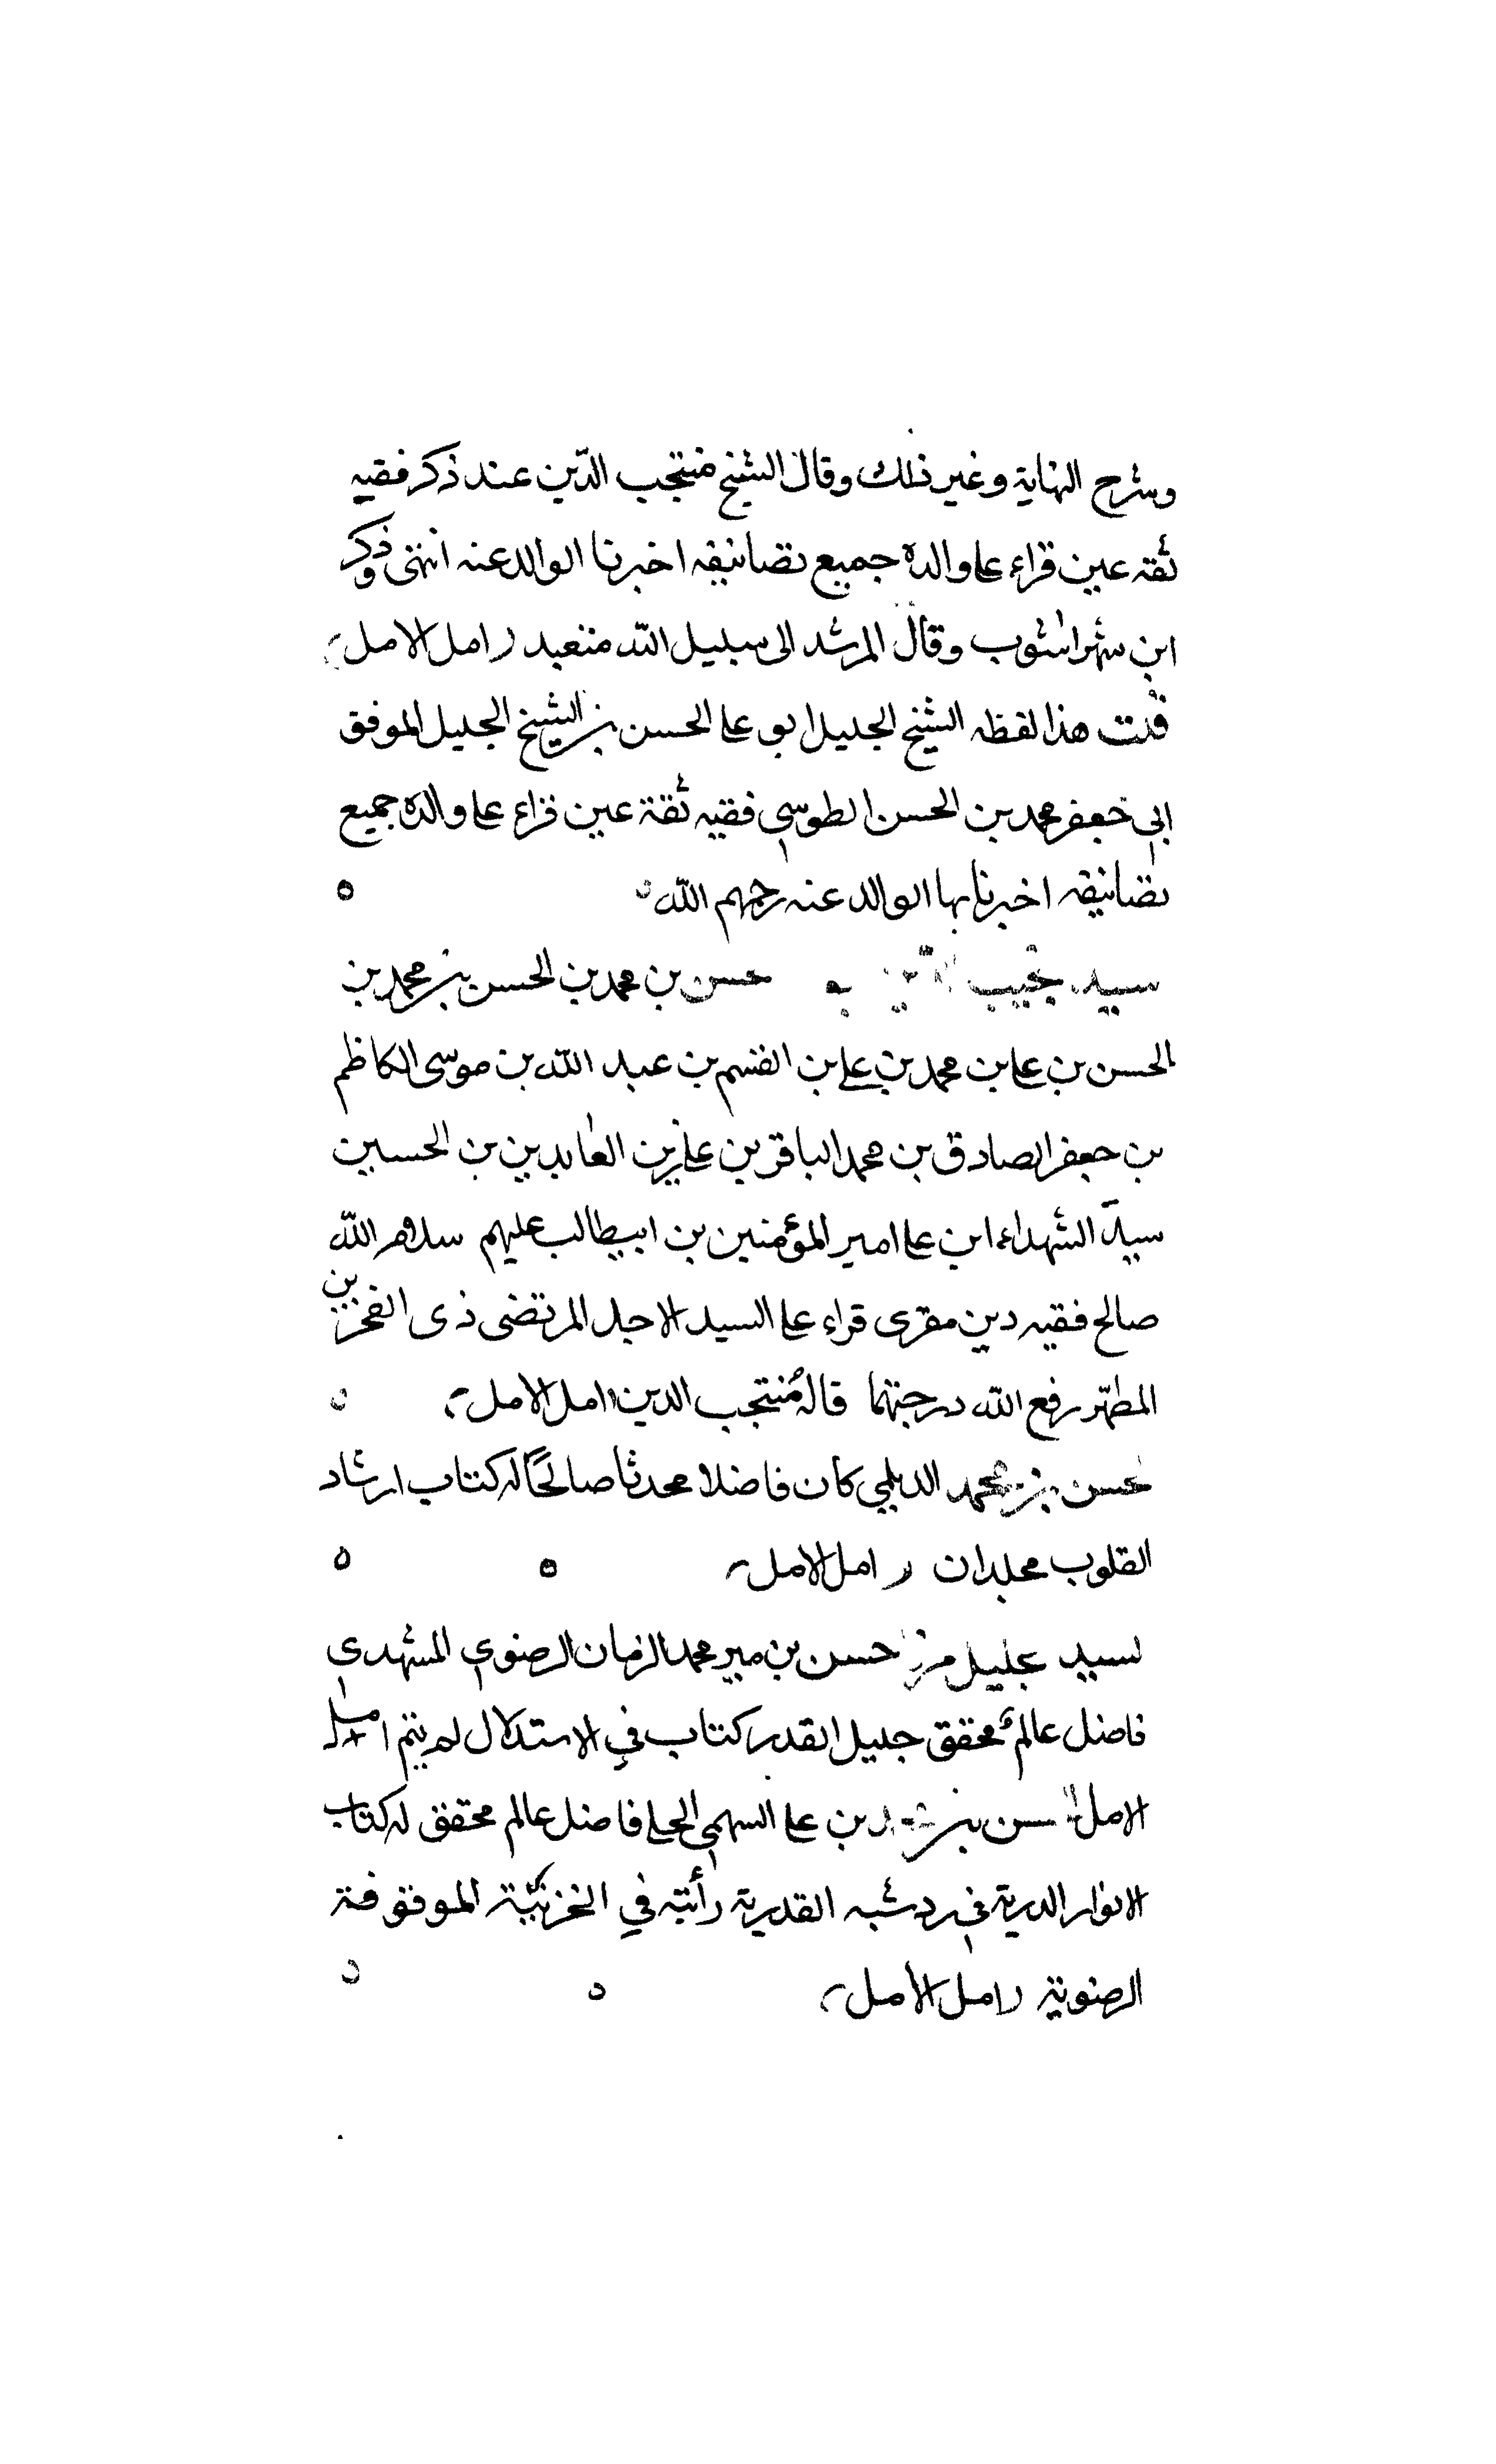 وشرح النهاية وغير ذلك وقال الشيخ منتجب الدّين عند ذكر فقيه
ثقة عين قراء على والده جميع تصانيفه اخبرنا الوالد عنه انتهى وذكر
ابن شهراشوب وقال المرشد الى سبيل الله متعبد امل الامل
قلت هذا لفظه الشيخ الجليل ابو على الحسن بن الشيخ الجليل الموفق
ابي جعفر محمد بن الحسن الطوسي فقيه ثقة عين قراء على والده جميع
تصانيفه اخبرنا بها الوالد عنه رحمهم الله
سيد نجيب حسن بن محمد بن الحسن بن محمد بن
الحسن بن على بن محمد بن على بن القسم بن عبد الله بن موسى الكاظم
بن جعفر الصادق بن محمد الباقر بن على زين العابدين بن الحسين
سيد الشهداء ابن على امير المؤمنين بن ابيطالب عليهم سلام الله
صالح فقيه دين مقرى قراء على السيد الاجل المرتضى ذى الفخرين
المطهّر رفع الله درجتهما قاله مُنتجب الدين امل الامل
حسن بن محمد الديلمي كان فاضلا محدثا صالحًا له كتاب ارشاد
القلوب مجلدان امل الامل
لسيد جليل حسن بن مير محمد الزمان الرضوي المشهدي
فاضل عالم محقق جليل القدر كتاب في الاستدلال لم يتم امل
الامل بن على السهمي الحلي فاضل عالم محقق له كتاب
الانوار الدرية في رد شبه القدرية رأيته في الخزينة الموقوفة
الرضوية امل الامل